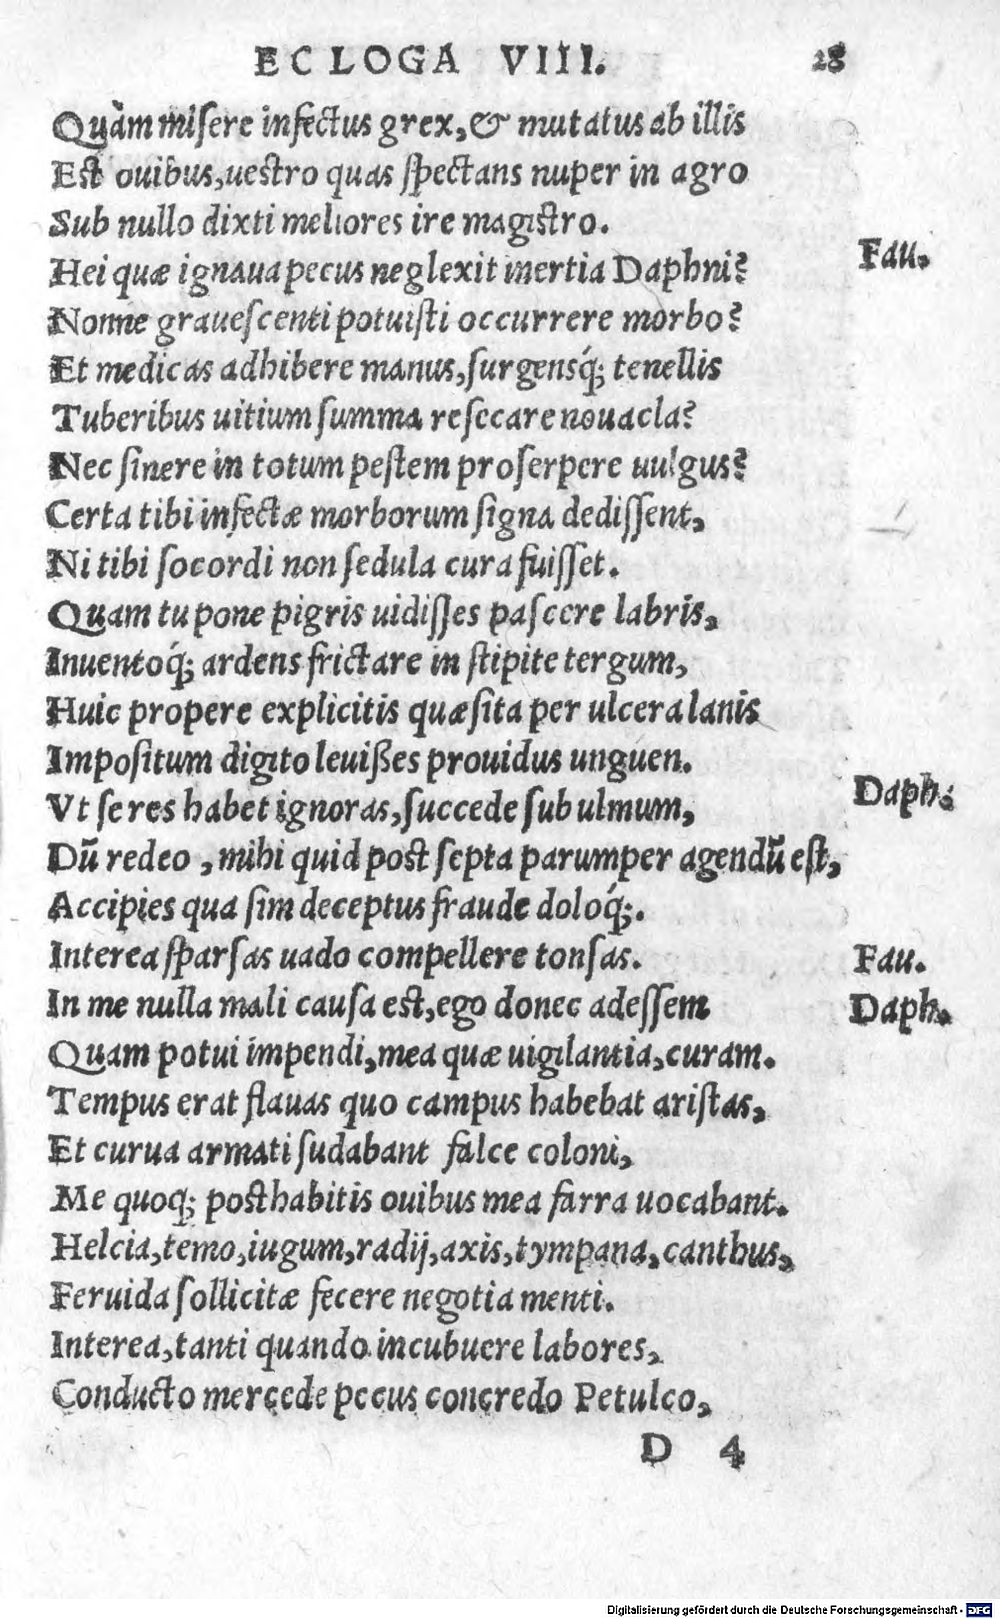 ECLOGA VIII. 28
Quàm misere infectus grex, & mutatus ab illis
Est ouibus, uestro quas spectans nuper in agro
Sub nullo dixti meliores ire magistro.
Hei quæ ignaua pecus neglexit inertia Daphni? Fau.
Nonne grauescenti potuisti occurrere morbo?
Et medicas adhibere manus, surgensq́; tenellis
Tuberibus uitium summa resecare nouacla?
Nec sinere in totum pestem proserpere uulgus?
Certa tibi infectæ morborum signa dedissent,
Ni tibi socordi non sedula cura fuisset.
Quam tu pone pigris uidisses pascere labris,
Inuentoq́; ardens frictare in stipite tergum,
Huic propere explicitis quæsita per ulcera lanis
Impositum digito leuißes prouidus unguen.
Vt se res habet ignoras, succede sub ulmum, Daph.
Dū redeo, mihi quid post septa parumper agendū est,
Accipies qua sim deceptus fraude doloq́;.
Interea sparsas uado compellere tonsas. Fau.
In me nulla mali causa est, ego donec adessem Daph.
Quam potui impendi, mea quæ uigilantia, curam.
Tempus erat flauas quo campus habebat aristas,
Et curua armati sudabant falce coloni,
Me quoq; posthabitis ouibus mea farra uocabant.
Helcia, temo, iugum, radij, axis, tympana, canthus,
Feruida sollicitæ fecere negotia menti.
Interea, tanti quando incubuere labores,
Conducto mercede pecus concredo Petulco,
D 4
Digitalisierung gefördert durch die Deutsche Forschungsgemeinschaft - DFG